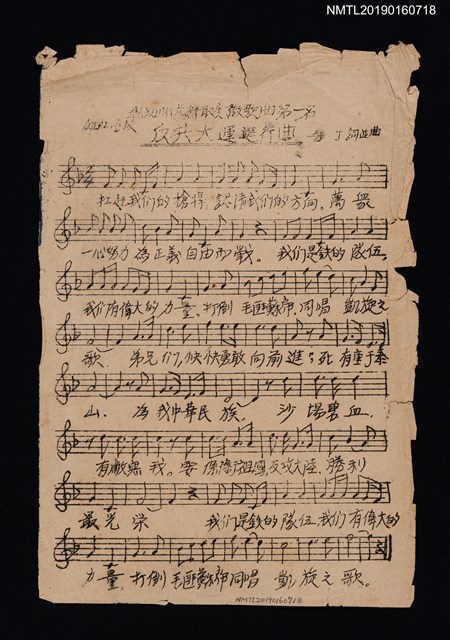 NMTL20190160718
徵歌曲第一名
反共大進行曲 丁 曲
扛起我们的槍桿,認清我们的方向,萬眾
一心努力為正義自由而戰。我们是鉄的隊伍,
我们有偉大的力量,打倒毛匪蘇帝,同唱凱旋之
歌。弟兄们,快快勇敢向前進;死有重于泰
山,為我中華民族,沙場碧血,
有敵無我。安保衛祖國反攻大陸,勝利
最光榮 我们是鉄的隊伍,我们有偉大的
力量,打倒毛匪蘇帝同唱凱旋之歌。
NMTL20190160718